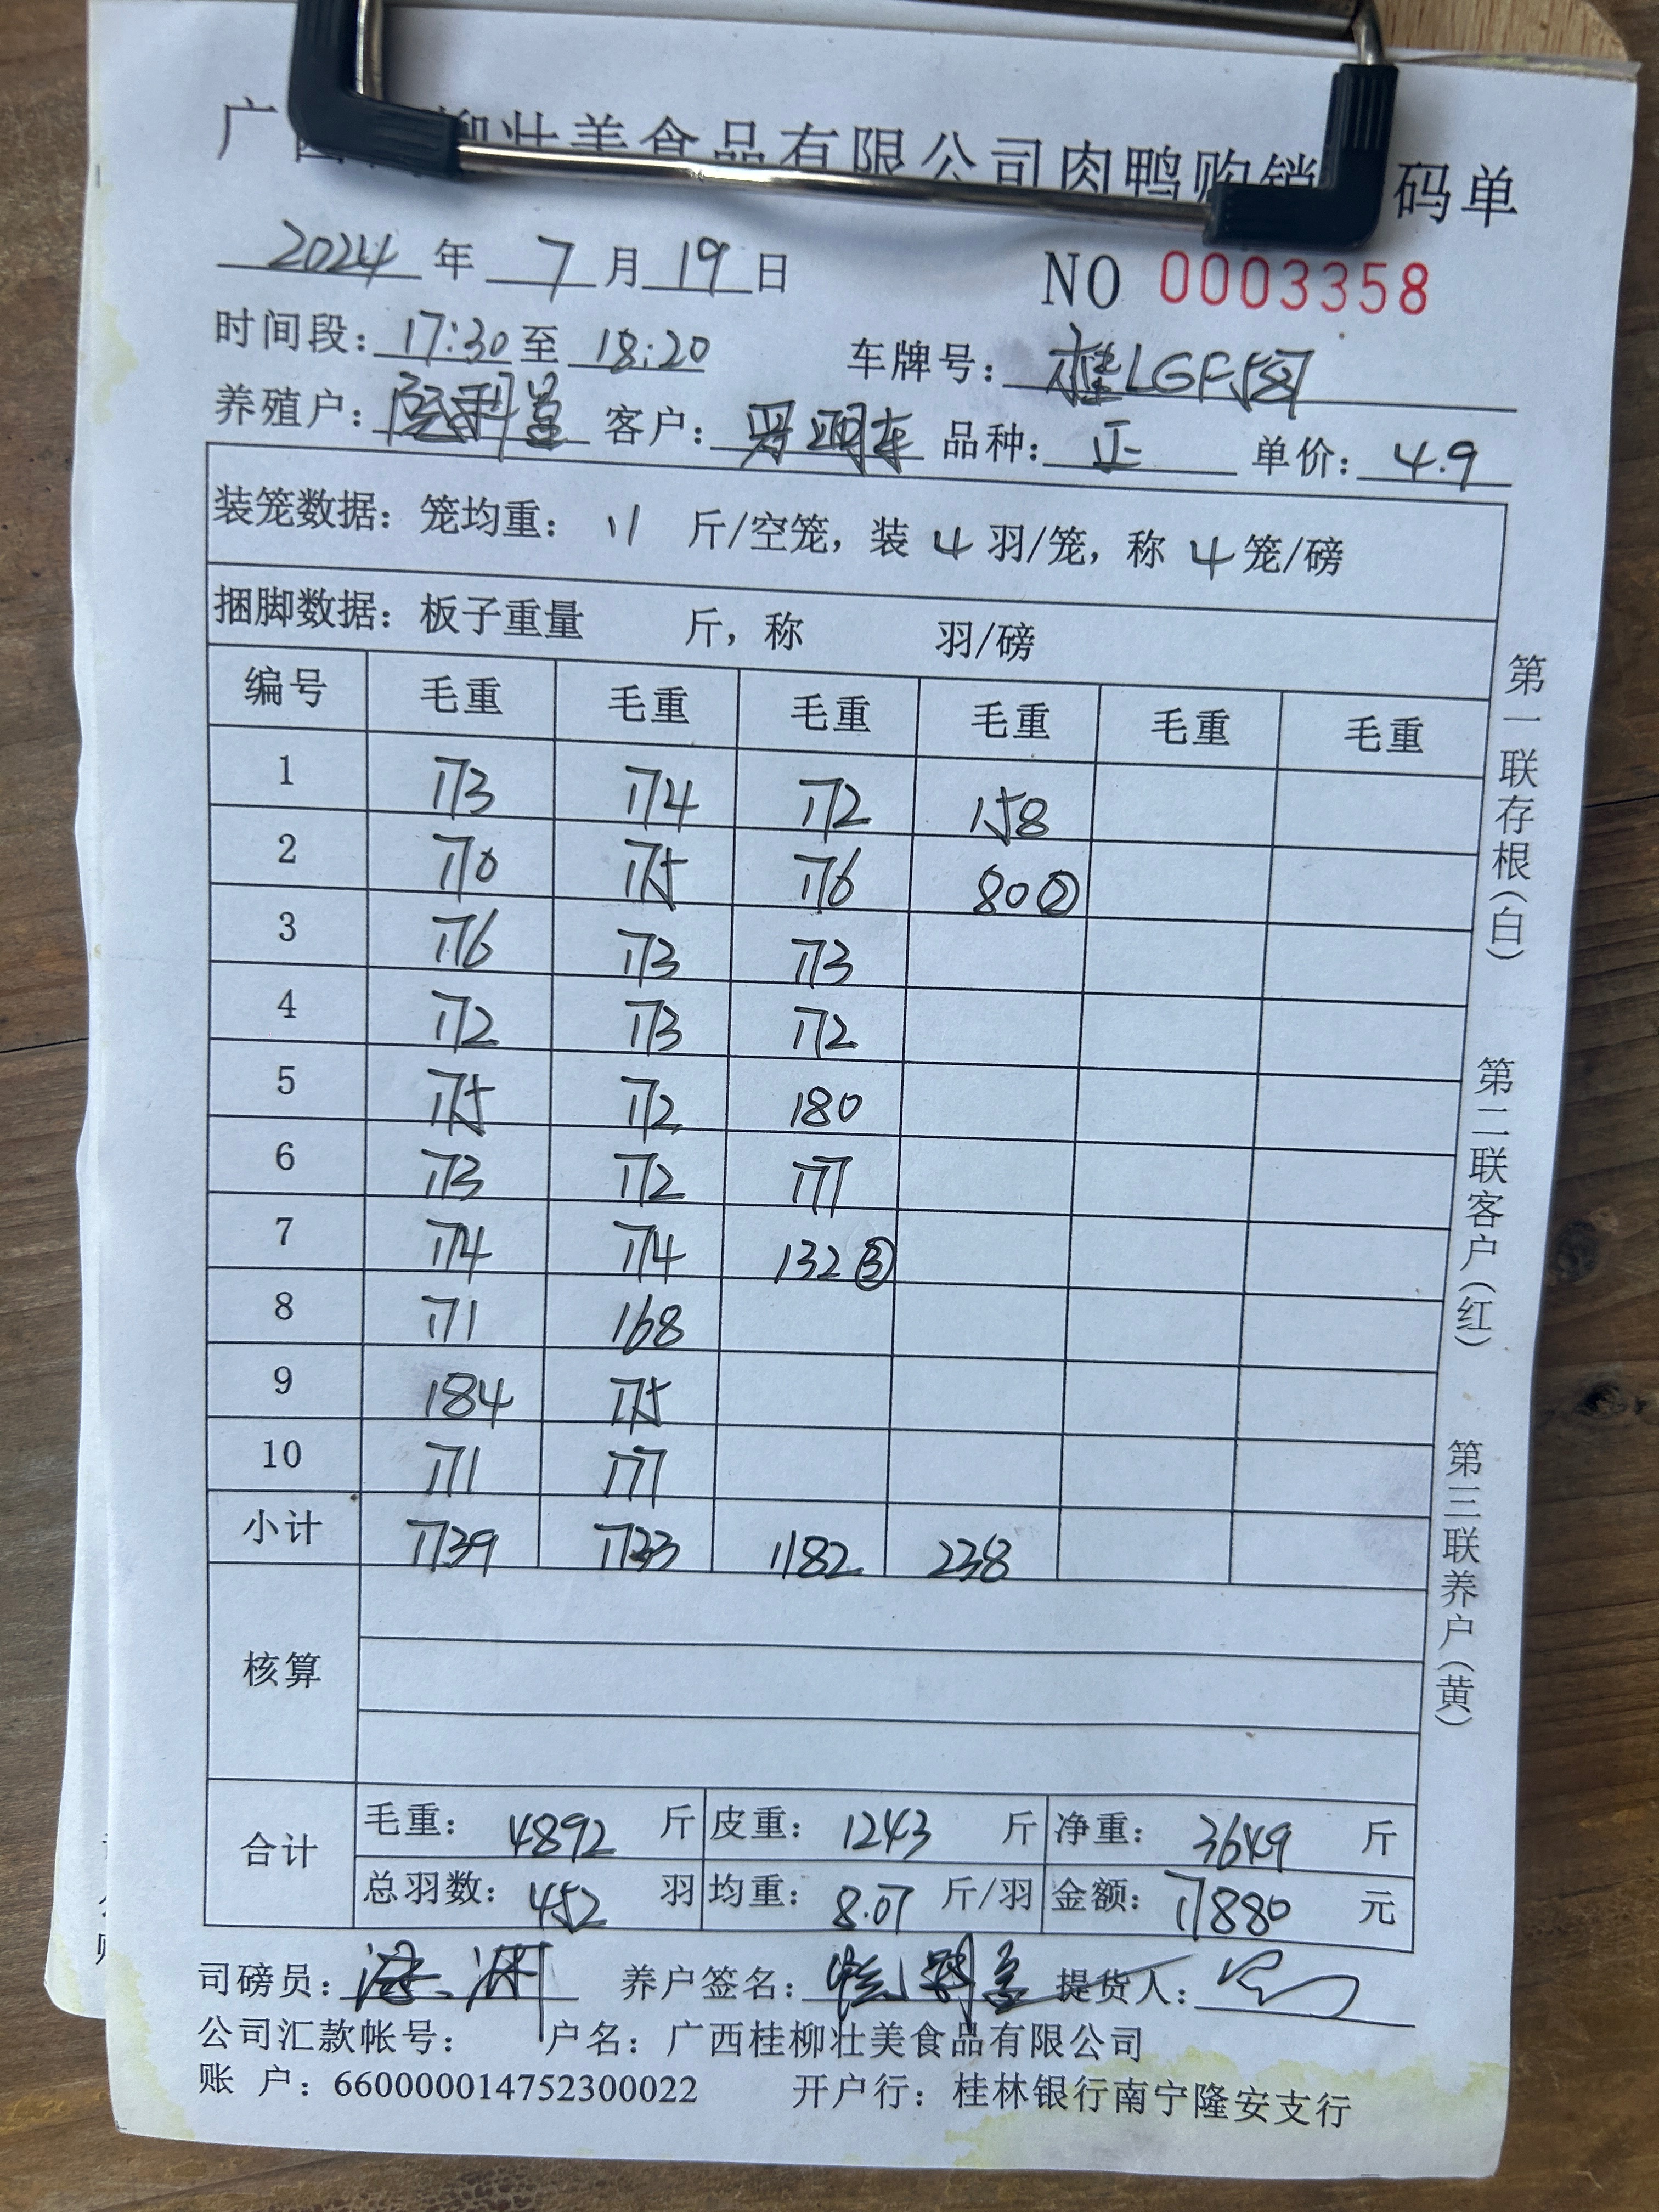 广西 柳壮美食品有限公司肉鸭购销 码单
2024 年 7 月 19 日
NO 0003358
时间段: 17:30 至 18:20 车牌号: 桂LGF
养殖户: 客户: 罗明车 品种: 正 单价: 4.9
装笼数据: 笼均重: 11 斤/空笼, 装 4 羽/笼, 称 4 笼/磅
捆脚数据: 板子重量 斤, 称 羽/磅
编号 毛重 毛重 毛重 毛重 毛重 毛重
1 173 174 172 158
2 170 175 176 80②
3 176 173 173
4 172 173 172
5 175 172 180
6 173 172 177
7 174 174 132③
8 171 168
9 184 175
10 171 177
小计 1739 1733 1182 238
核算
合计 毛重: 4892 斤 皮重: 1243 斤 净重: 3649 斤
总羽数: 452 羽 均重: 8.07 斤/羽 金额: 17880 元
司磅员: 养户签名: 提货人:
公司汇款帐号: 户名: 广西桂柳壮美食品有限公司
账 户: 660000014752300022 开户行: 桂林银行南宁隆安支行
第一联存根(白)
第二联客户(红)
第三联养户(黄)